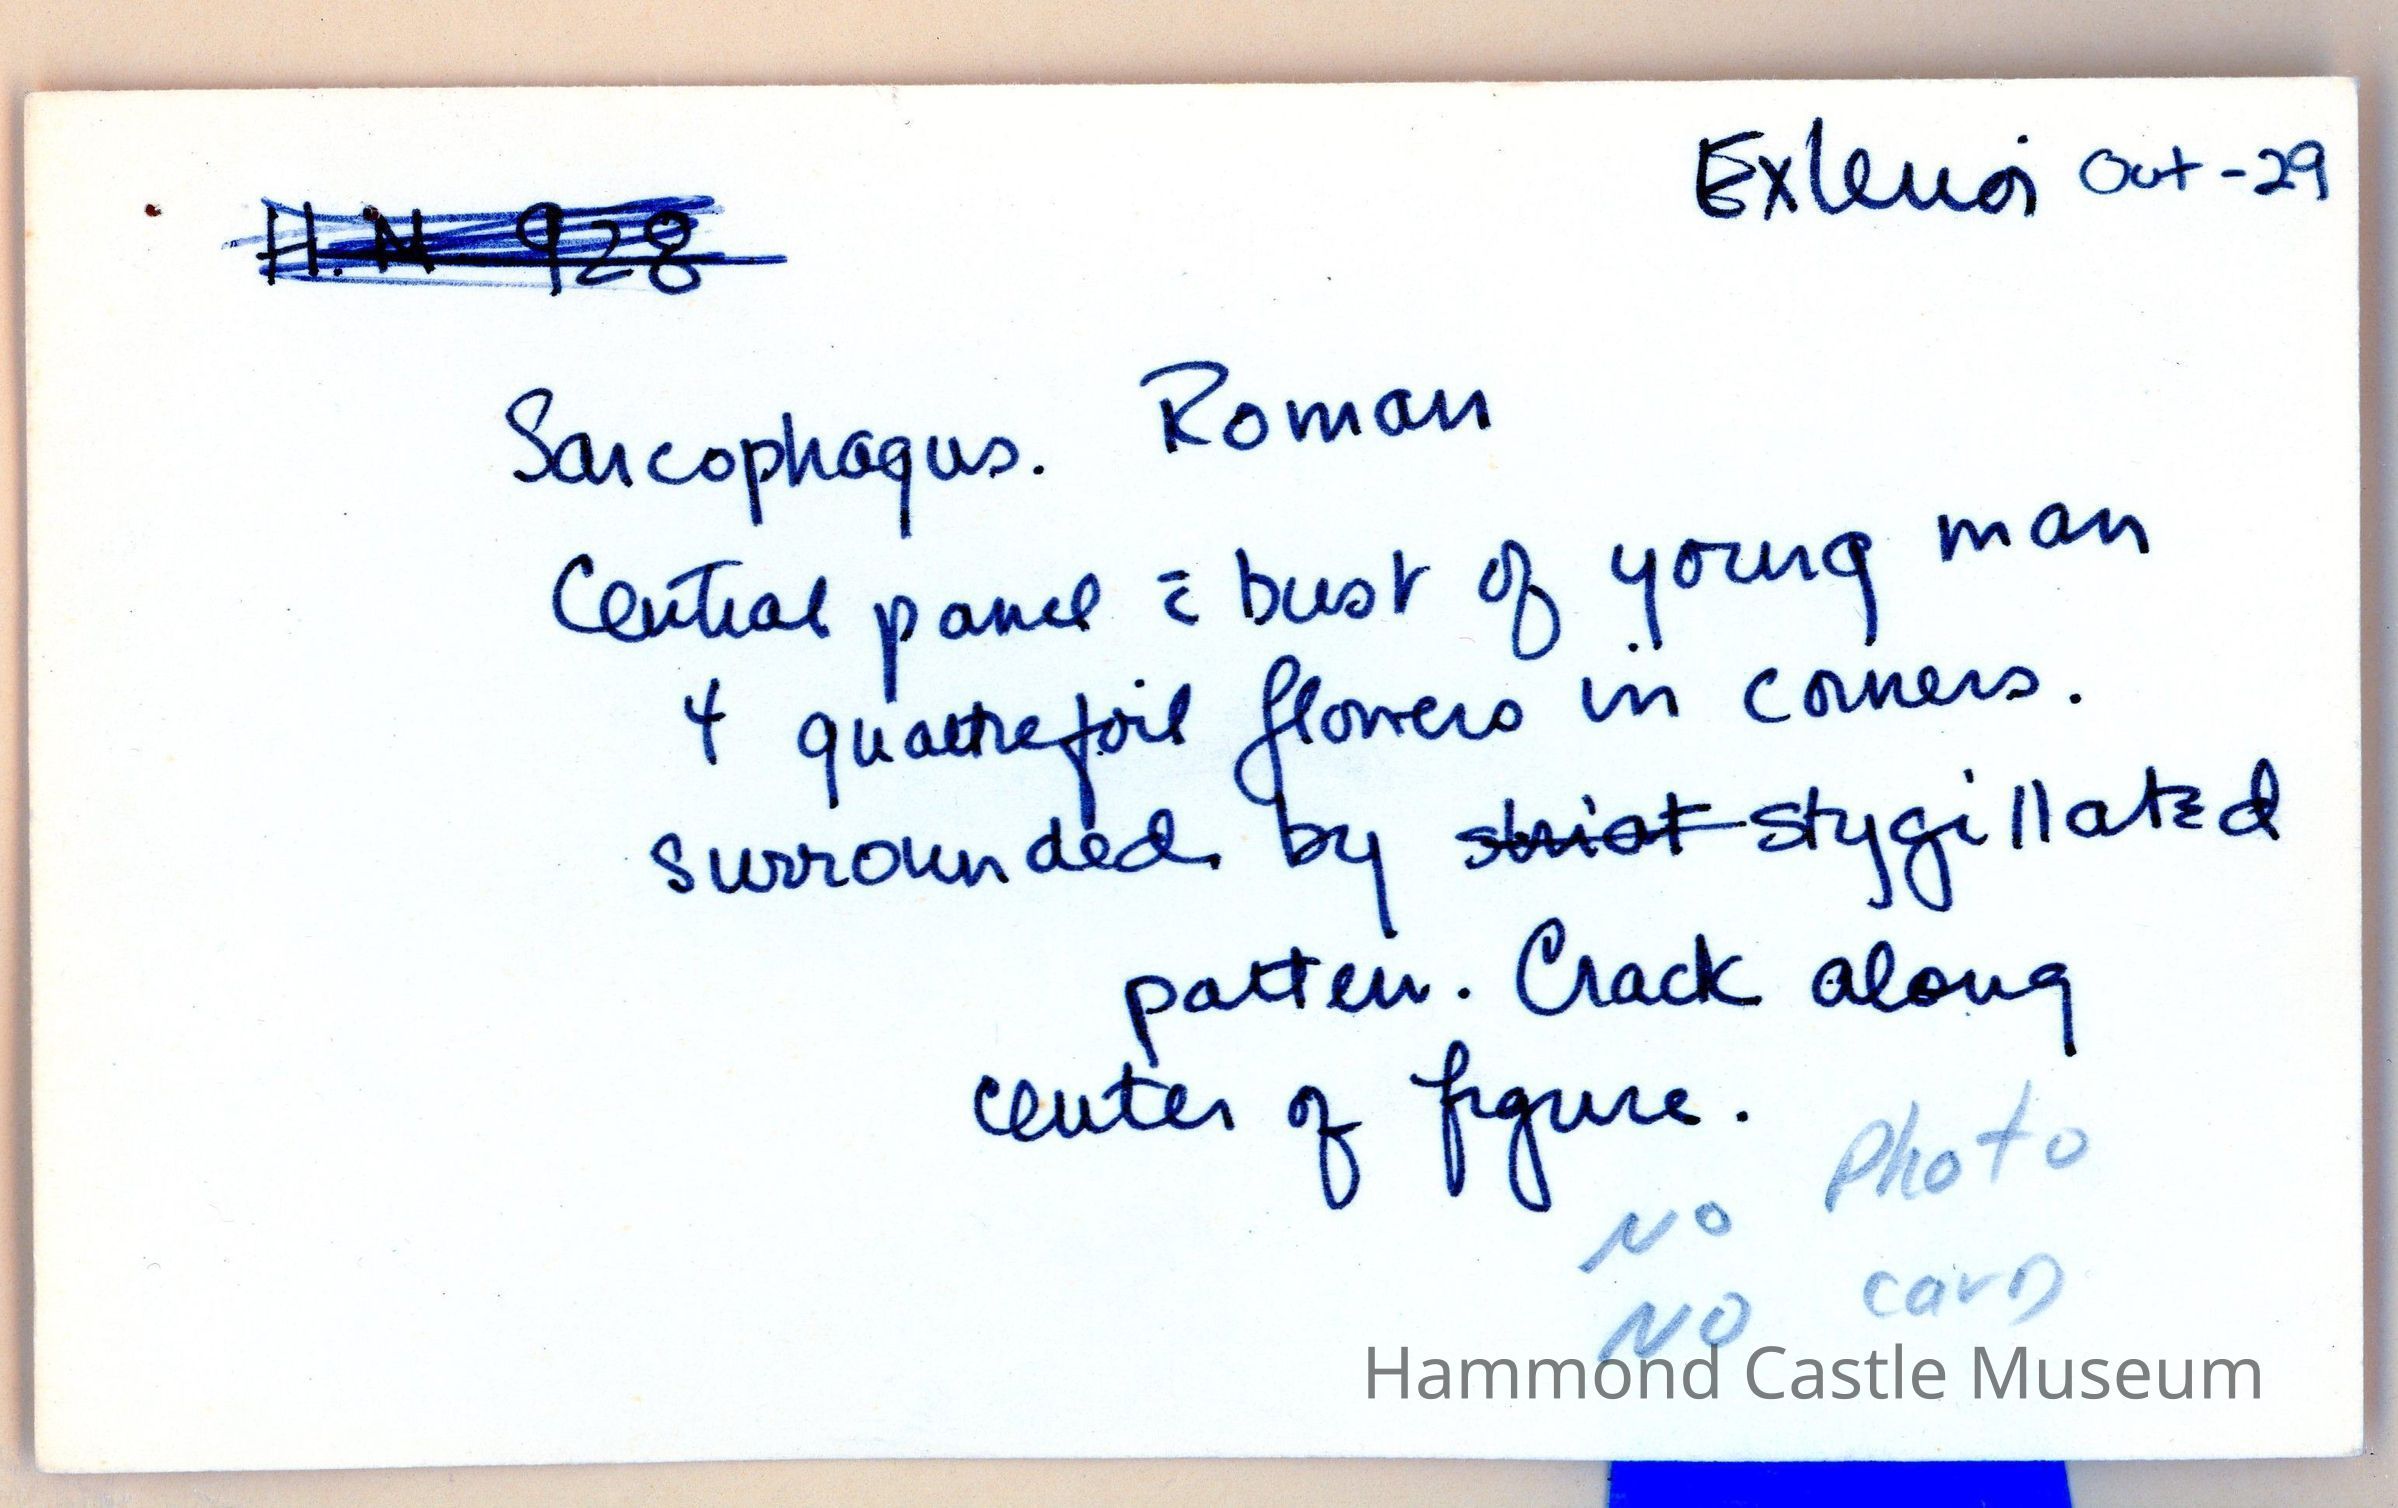 Exterior Out-29
H.N 928
Sarcophagus. Roman
Central panel c̄ bust of young man
4 quatrefoil flowers in corners.
surrounded by striat stygillated
pattern. Crack along
center of figure.
No Photo
No card
Hammond Castle Museum